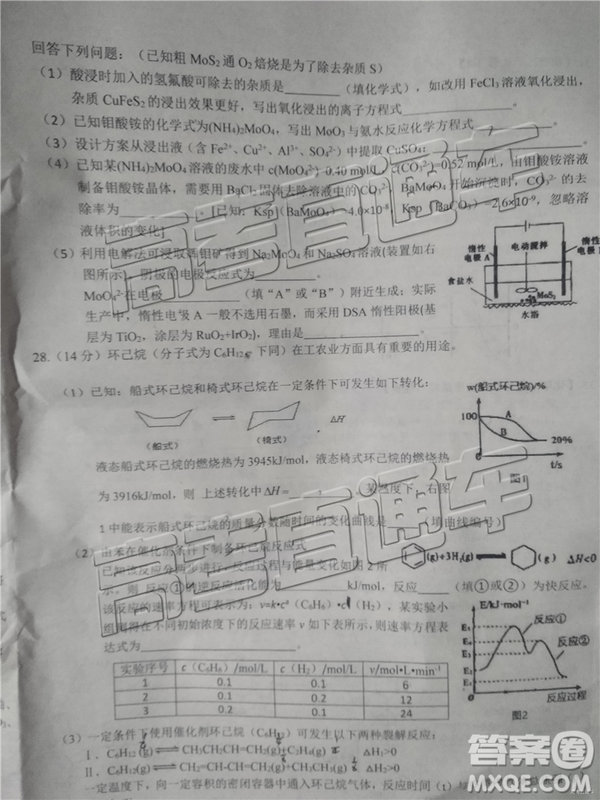 回答下列问题：（已知粗 MoS₂ 通 O₂ 焙烧是为了除去杂质 S）
（1）酸浸时加入的氢氟酸可除去的杂质是________（填化学式），如改用 FeCl₃ 溶液氧化浸出，
杂质 CuFeS₂ 的浸出效果更好，写出氧化浸出的离子方程式________________。
（2）已知钼酸铵的化学式为(NH₄)₂MoO₄，写出 MoO₃ 与氨水反应化学方程式________。
（3）设计方案从浸出液（含 Fe²⁺、Cu²⁺、Al³⁺、SO₄²⁻）中提取 CuSO₄
（4）已知某(NH₄)₂MoO₄ 溶液的废水中 c(MoO₄²⁻)=0.40 mol/L，c(CO₃²⁻)=0.52 mol/L，由钼酸铵溶液
制备钼酸铵晶体，需要用 BaCl₂ 固体去除溶液中的 CO₃²⁻，BaMoO₄ 开始沉淀时，CO₃²⁻ 的去
除率为________。[已知：Ksp(BaMoO₄)=4.0×10⁻⁸，Ksp(BaCO₃)=2.6×10⁻⁹，忽略溶
液体积的变化]
（5）利用电解法可浸取辉钼矿得到 Na₂MoO₄ 和 Na₂SO₄ 溶液(装置如右
图所示)，阴极的电极反应式为________。
MoO₄²⁻在电极________（填“A”或“B”）附近生成；实际
生产中，惰性电极 A 一般不选用石墨，而采用 DSA 惰性阳极(基
层为 TiO₂，涂层为 RuO₂+IrO₂)，理由是________。
惰性
电极 A
电动搅拌
惰性
电极 B
食盐水
MoS₂
水浴
28.（14 分）环己烷（分子式为 C₆H₁₂，下同）在工农业方面具有重要的用途。
（1）已知：船式环己烷和椅式环己烷在一定条件下可发生如下转化：
（船式） ⇌ （椅式） ΔH
液态船式环己烷的燃烧热为 3945kJ/mol，液态椅式环己烷的燃烧热
为 3916kJ/mol，则 上述转化中 ΔH=________，某温度下，右图
1 中能表示船式环己烷的质量分数随时间的变化曲线是________（填曲线编号）
w(船式环己烷)/%
100
A
B
20%
t/s
图1
（2）由苯在催化剂条件下制备环己烷反应式
(g)+3H₂(g) ⇌ (g) ΔH<0
已知该反应分两步进行，反应过程与能量变化如图 2 所
示。则 反应①的逆反应活化能为________kJ/mol，反应____（填①或②）为快反应。
该反应的速率方程可表示为：v=k•c(C₆H₆)•c(H₂)，某实验小
组测得在不同初始浓度下的反应速率 v 如下表所示，则速率方程表
达式为________
实验序号 c（C₆H₆）/mol/L c（H₂）/mol/L v/mol•L•min⁻¹
1 0.1 0.1 6
2 0.1 0.2 12
3 0.2 0.1 24
E/kJ·mol⁻¹
反应①
反应②
E₅
E₄
E₃
E₂
E₁
反应过程
图2
（3）一定条件下使用催化剂环己烷可发生以下两种裂解反应：
Ⅰ．C₆H₁₂(g) ⇌ CH₃CH₂CH=CH₂(g)+C₂H₄(g) ΔH₁>0
Ⅱ．C₆H₁₂(g) ⇌ CH₂=CH-CH=CH₂(g)
ΔH₂>0
一定温度下，向一定容积的密闭容器中通入环己烷气体，反应时间（t）
高考直通车
高考直通车
答案圈
MXQE.COM